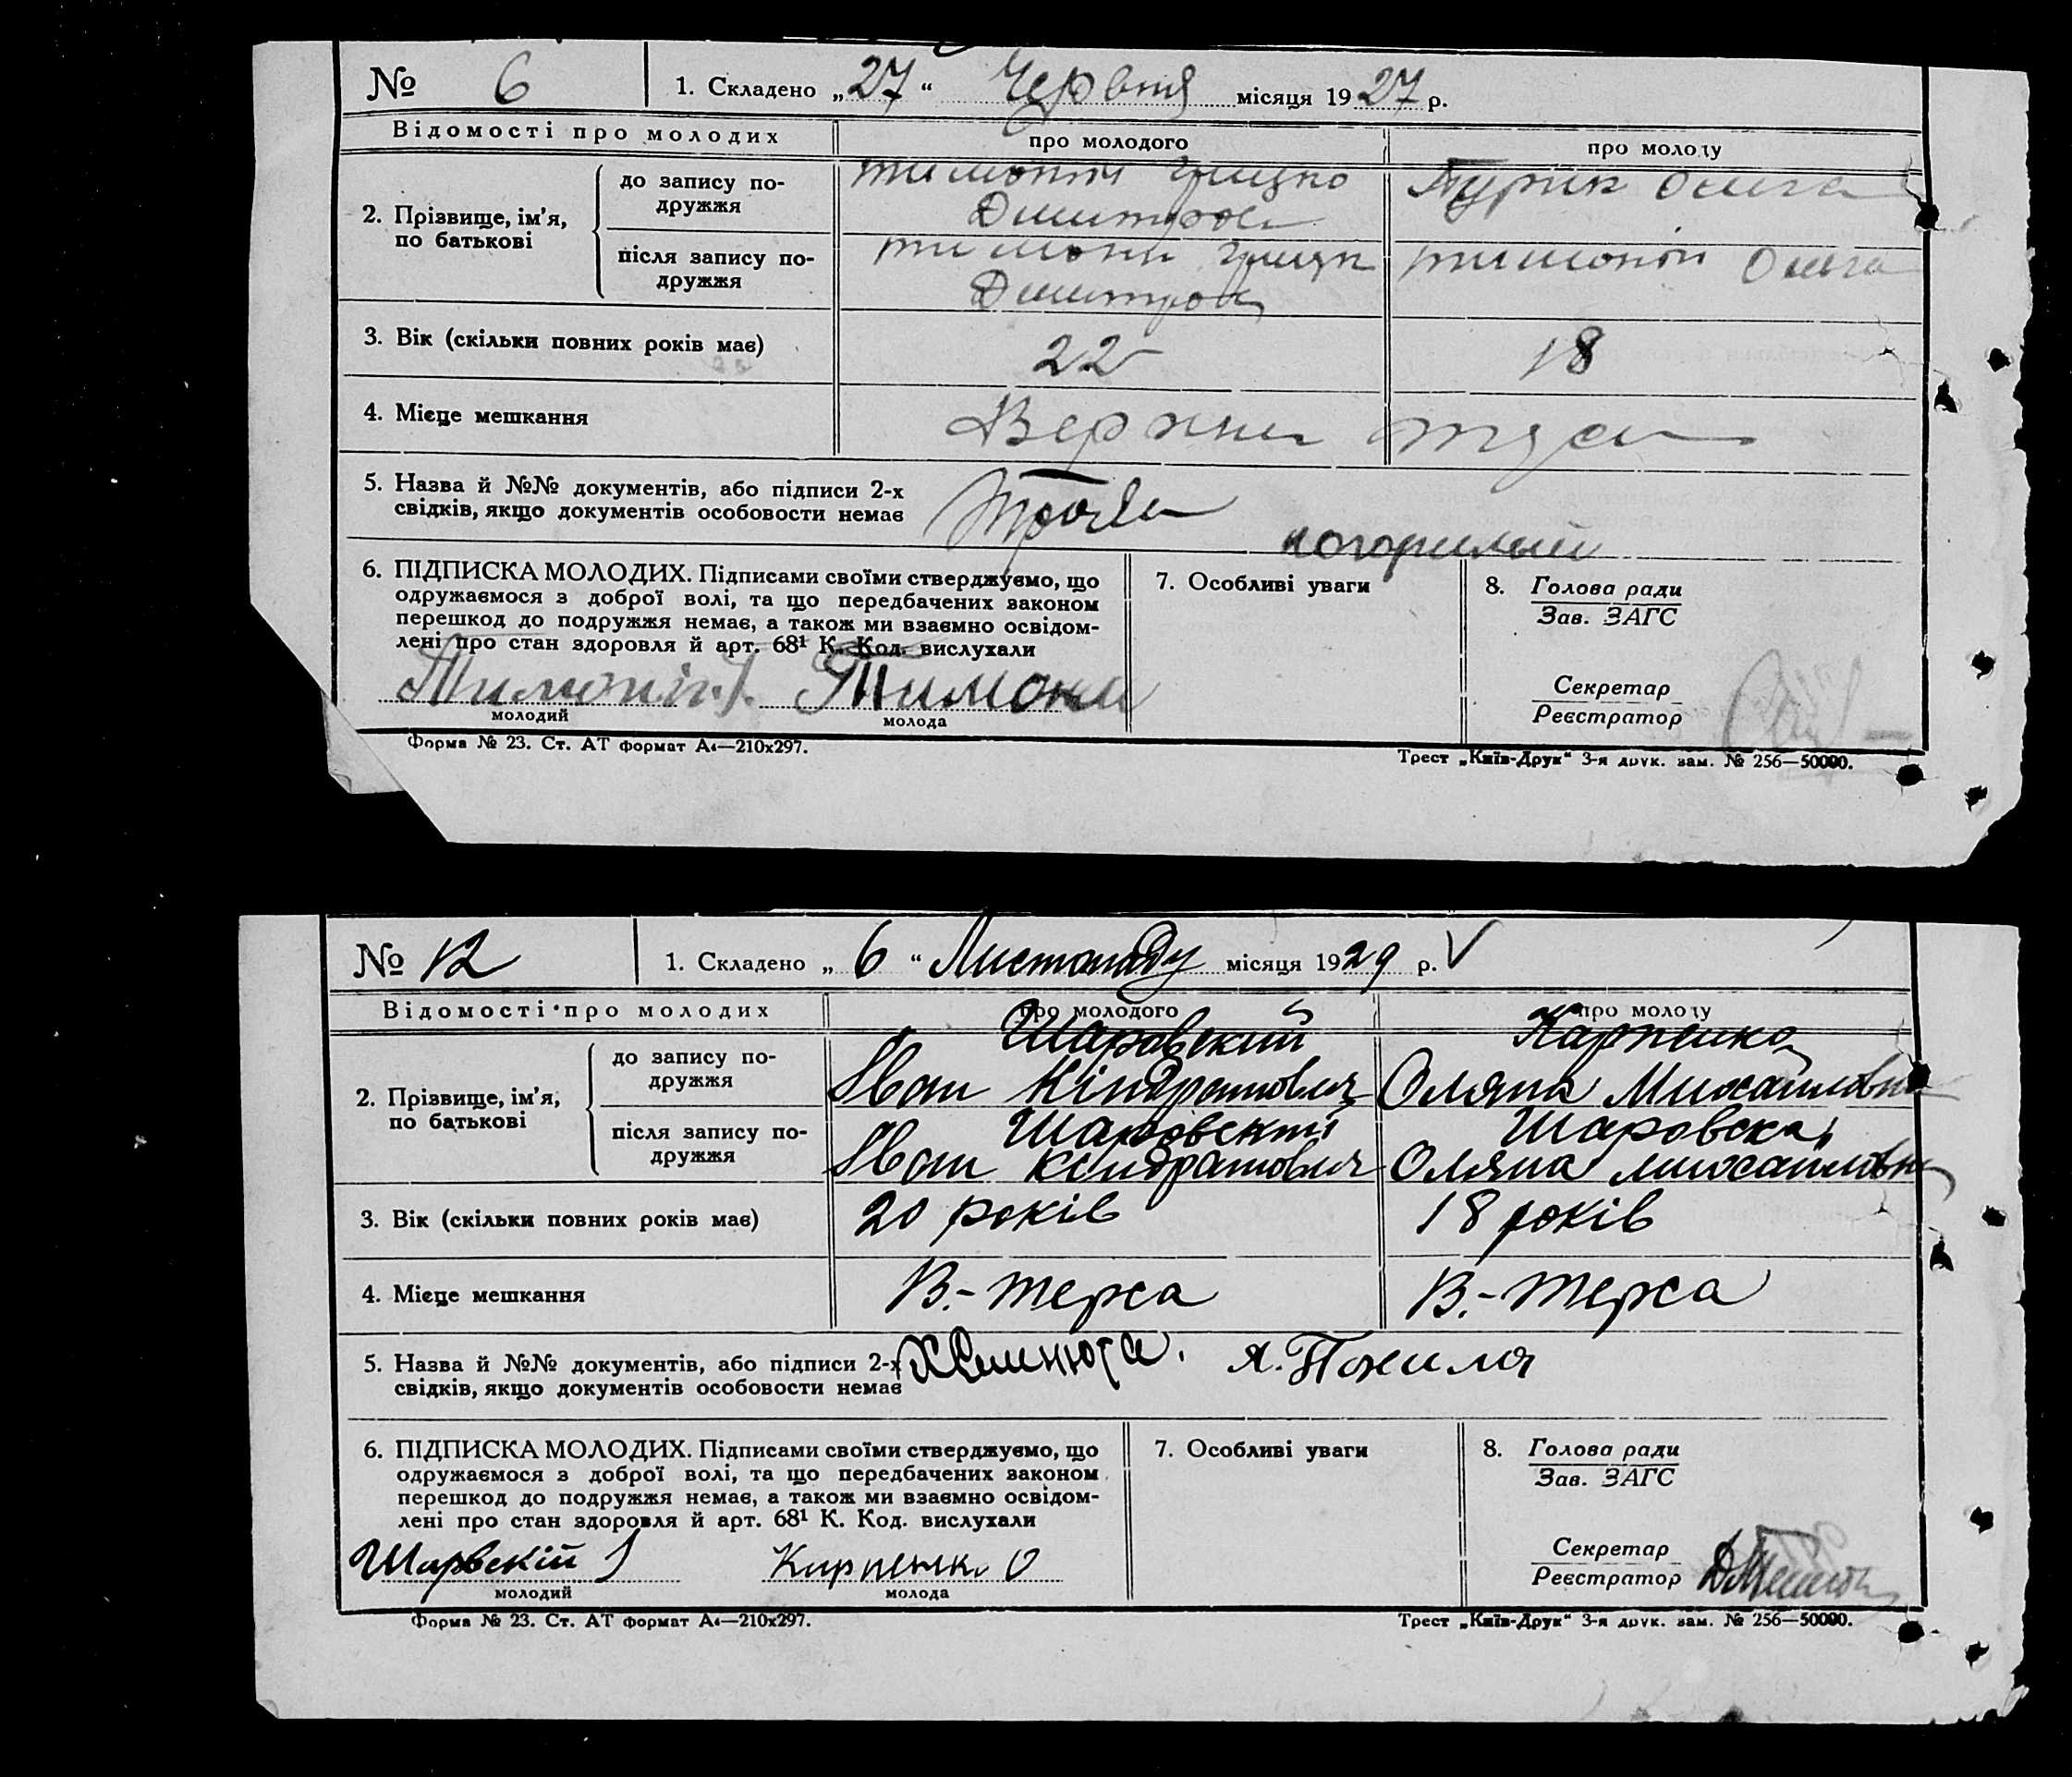 № 6 1. Складено „27“ Червня місяця 1927 р.
Відомості про молодих про молодого про молоду
2. Прізвище, ім’я, по батькові
до запису по-
дружжя
Грицко
Дмитров
Олга
після запису по-
дружжя
Дмитров
Олга
3. Вік (скільки повних років має) 22 18
4. Місце мешкання
5. Назва й №№ документів, або підписи 2-х
свідків, якщо документів особовости немає
6. ПІДПИСКА МОЛОДИХ. Підписами своїми стверджуємо, що
одружаємося з доброї волі, та що передбачених законом
перешкод до подружжя немає, а також ми взаємно освідом-
лені про стан здоровля й арт. 68¹ К. Код. вислухали
7. Особливі уваги
8. Голова ради
Зав. ЗАГС
Секретар
Реєстратор
Тимони
молодий молода
Форма № 23. Ст. АТ формат А4—210х297. Трест „Київ-Друк“ 3-я друк. зам. № 256—50000.
№ 12 1. Складено „6“ Листопаду місяця 1929 р. V
Відомості про молодих про молодого про молоду
2. Прізвище, ім’я,
по батькові
до запису по-
дружжя
Шаровский
Іван Кіндратович
Карпенко
Оляна Михайловна
після запису по-
дружжя
Шаровский
Іван Кіндратович
Шаровска
Оляна Михайловна
3. Вік (скільки повних років має) 20 років 18 років
4. Місце мешкання В.-Терса В.-Терса
5. Назва й №№ документів, або підписи 2-х
свідків, якщо документів особовости немає
6. ПІДПИСКА МОЛОДИХ. Підписами своїми стверджуємо, що
одружаємося з доброї волі, та що передбачених законом
перешкод до подружжя немає, а також ми взаємно освідом-
лені про стан здоровля й арт. 68¹ К. Код. вислухали
7. Особливі уваги
8. Голова ради
Зав. ЗАГС
Секретар
Реєстратор
Карпенко О
молодий молода
Форма № 23. Ст. АТ формат А4—210х297. Трест „Київ-Друк“ 3-я друк. зам. № 256—50000.